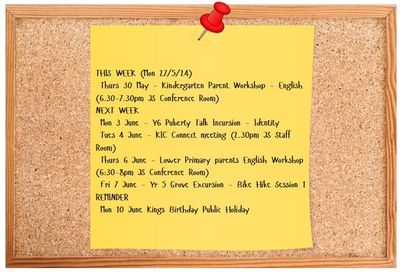 THIS WEEK (Mon 27/5/24)
Thurs 30 May - Kindergarten Parent Workshop - English
(6.30-7.30pm JS Conference Room)
NEXT WEEK
Mon 3 June - Y6 Puberty Talk Incursion - Identity
Tues 4 June - KIC Connect meeting (2.30pm JS Staff
Room)
Thurs 6 June - Lower Primary parents English Workshop
(6:30-8pm JS Conference Room)
Fri 7 June - Yr 5 Grove Excursion - Bike Hike Session 1
REMINDER
Mon 10 June Kings Birthday Public Holiday